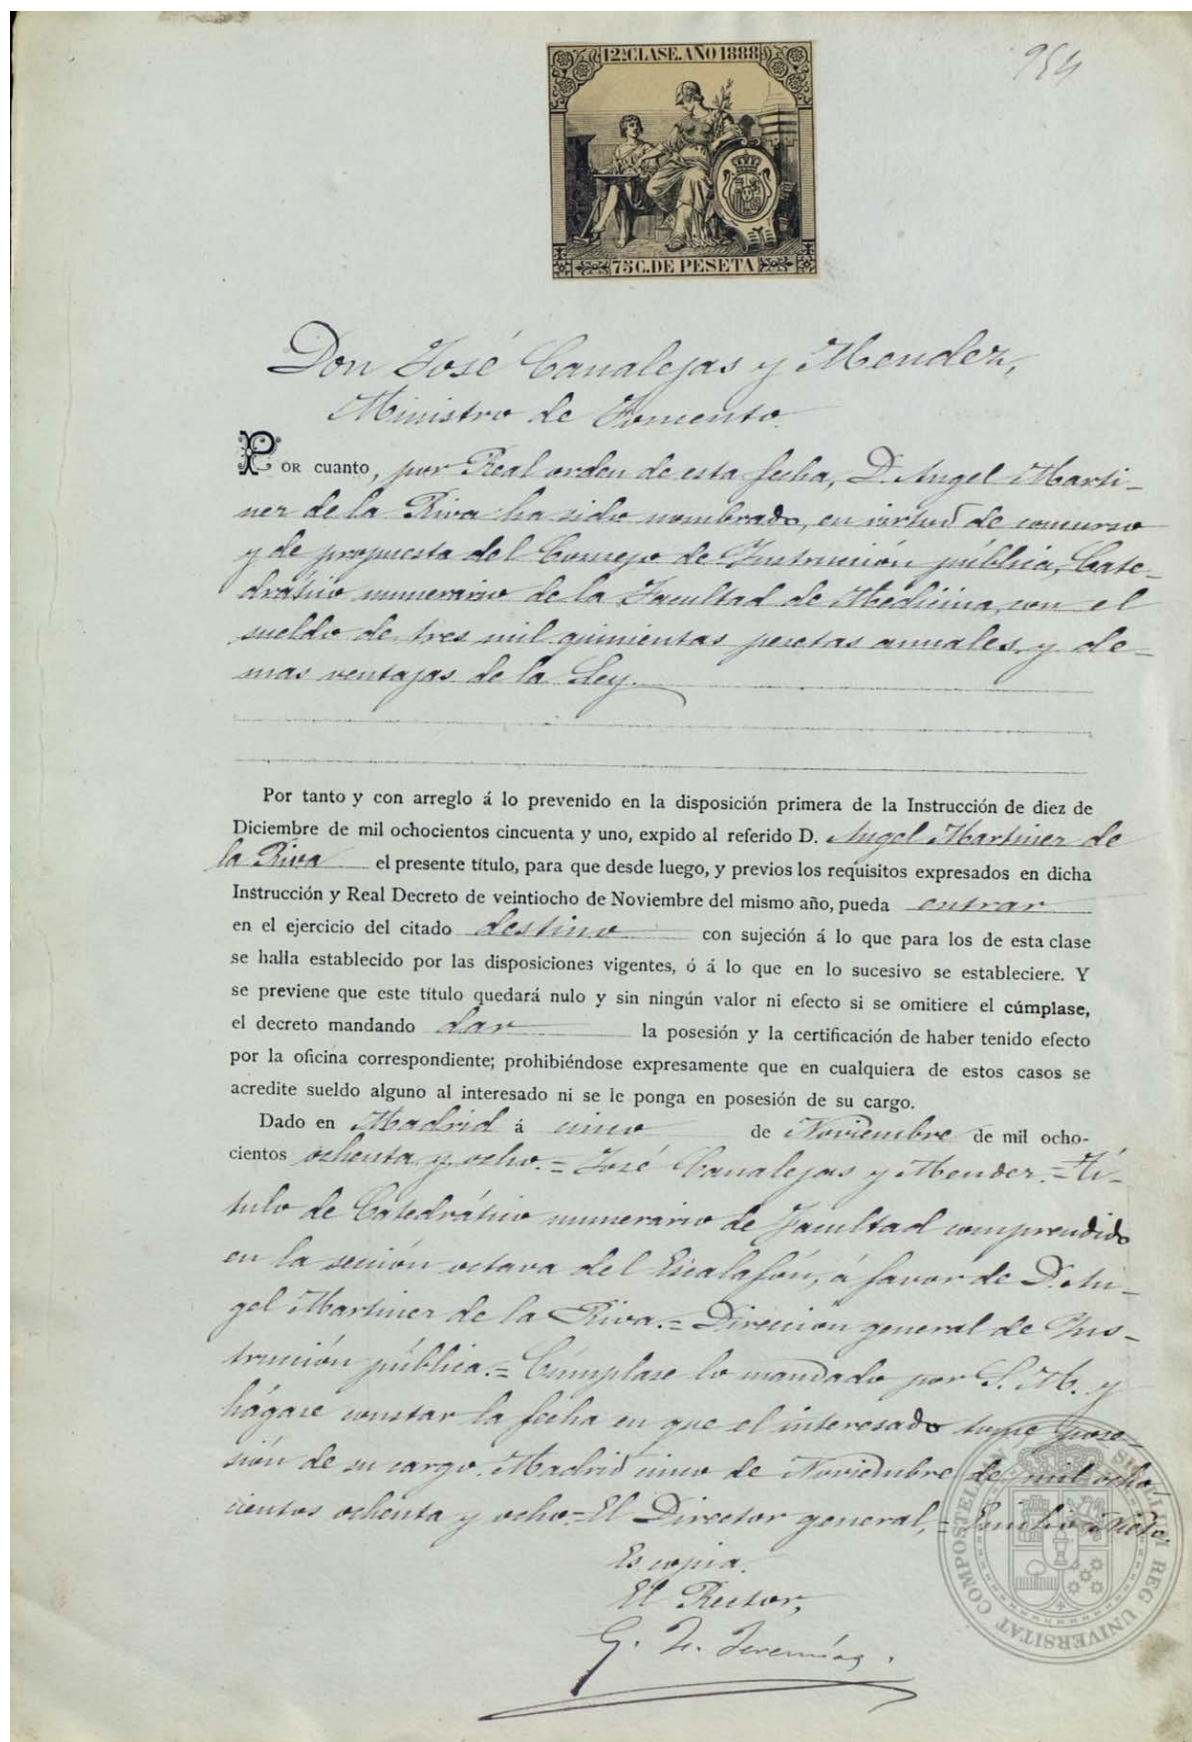 954
12ª CLASE. AÑO 1888
75 C. DE PESETA
Don José Canalejas y Mendez,
Ministro de Fomento.
POR cuanto, por Real orden de esta fecha, D. Angel Marti-
nez de la Riva ha sido nombrado, en virtud de concurso
y de propuesta del Consejo de Instrucción pública, Cate-
drático numerario de la Facultad de Medicina, con el
sueldo de tres mil quinientas pesetas anuales, y de-
mas ventajas de la Ley.
Por tanto y con arreglo á lo prevenido en la disposición primera de la Instrucción de diez de
Diciembre de mil ochocientos cincuenta y uno, expido al referido D. Angel Martinez de
la Riva el presente título, para que desde luego, y previos los requisitos expresados en dicha
Instrucción y Real Decreto de veintiocho de Noviembre del mismo año, pueda entrar
en el ejercicio del citado destino con sujeción á lo que para los de esta clase
se halla establecido por las disposiciones vigentes, ó á lo que en lo sucesivo se estableciere. Y
se previene que este título quedará nulo y sin ningún valor ni efecto si se omitiere el cúmplase,
el decreto mandando dar la posesión y la certificación de haber tenido efecto
por la oficina correspondiente; prohibiéndose expresamente que en cualquiera de estos casos se
acredite sueldo alguno al interesado ni se le ponga en posesión de su cargo.
Dado en Madrid á cinco de Noviembre de mil ocho-
cientos ochenta y ocho.=José Canalejas y Mendez.=Tí-
tulo de Catedrático numerario de Facultad comprendido
en la sección octava del Escalafón, á favor de D. An-
gel Martinez de la Riva.=Dirección general de Ins-
trucción pública.=Cúmplase lo mandado por S. M. y
hágase constar la fecha en que el interesado tome pose-
sión de su cargo. Madrid cinco de Noviembre de mil ocho-
cientos ochenta y ocho=El Director general,=Emilio Nieto.
Es copia.
El Rector,
G. F. Jeremías.
SIGILLUM REG UNIVERSITAT COMPOSTELLAN